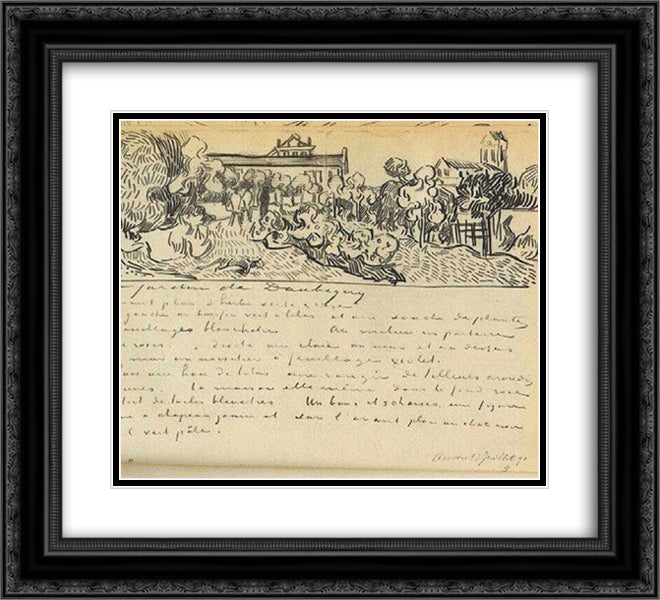 jardin de Daubigny
avant plan d'herbe verte & rose
gauche un buisson vert & lilas et une souche de plantes
feuillages blanchatres Au milieu un parterre
de roses. à droite une claie un mur et au dessus
mur un noisetier à feuillage violet.
puis une haie de lilas une rangée de tilleuls arrondis
jaunes. la maison elle même dans le fond rose
toit de tuiles bleuatres Un banc et 3 chaises, une figure
à chapeau jaune et sur l'avant plan un chat noir
vert pâle.
Auvers Juillet 90